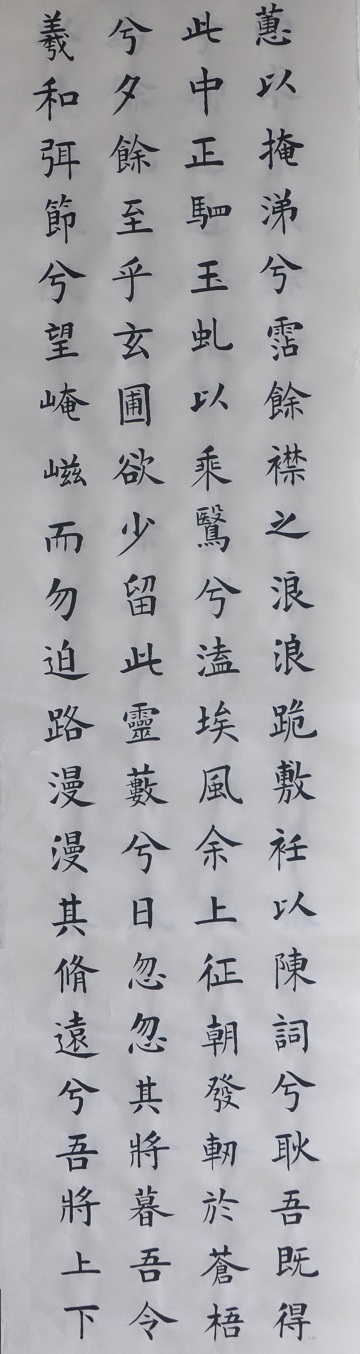 蕙以掩涕兮霑餘襟之浪浪跪敷衽以陳詞兮耿吾既得
此中正駟玉虬以乘鷖兮溘埃風余上征朝發軔於蒼梧
兮夕餘至乎玄圃欲少留此靈藪兮日忽忽其將暮吾令
羲和弭節兮望崦嵫而勿迫路漫漫其脩遠兮吾將上下